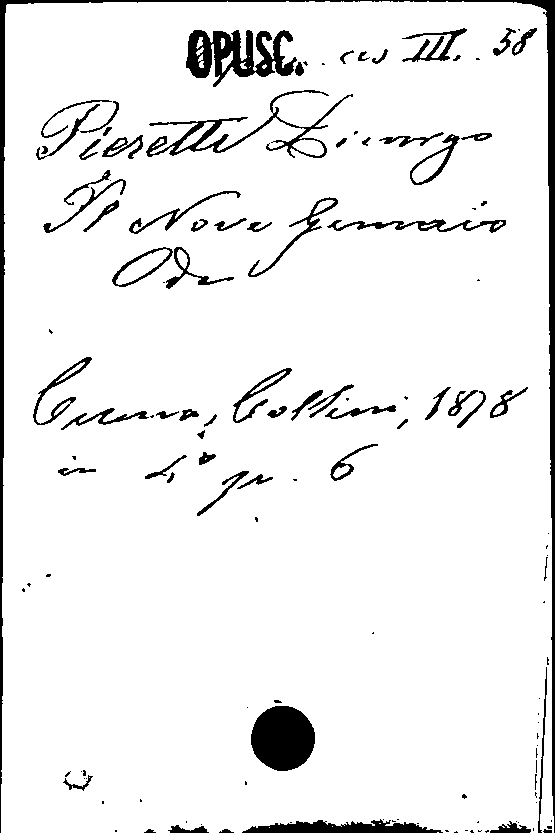 OPUSC. cas III. 58
Pieretti Licurgo
Il Nove Gennaio
Ode
Cesena, Collini, 1878
in 4° pp. 6